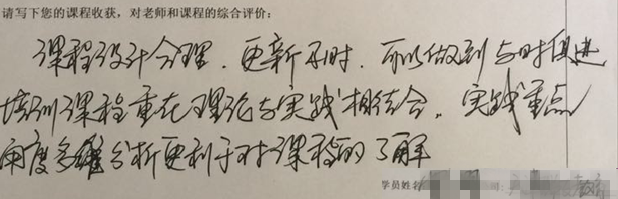 请写下您的课程收获，对老师和课程的综合评价：
课程设计合理．更新及时．可以做到与时俱进
培训课程重在理论与实践相结合．实践重点
角度多 分析更利于对课程的了解
学员姓名
司：